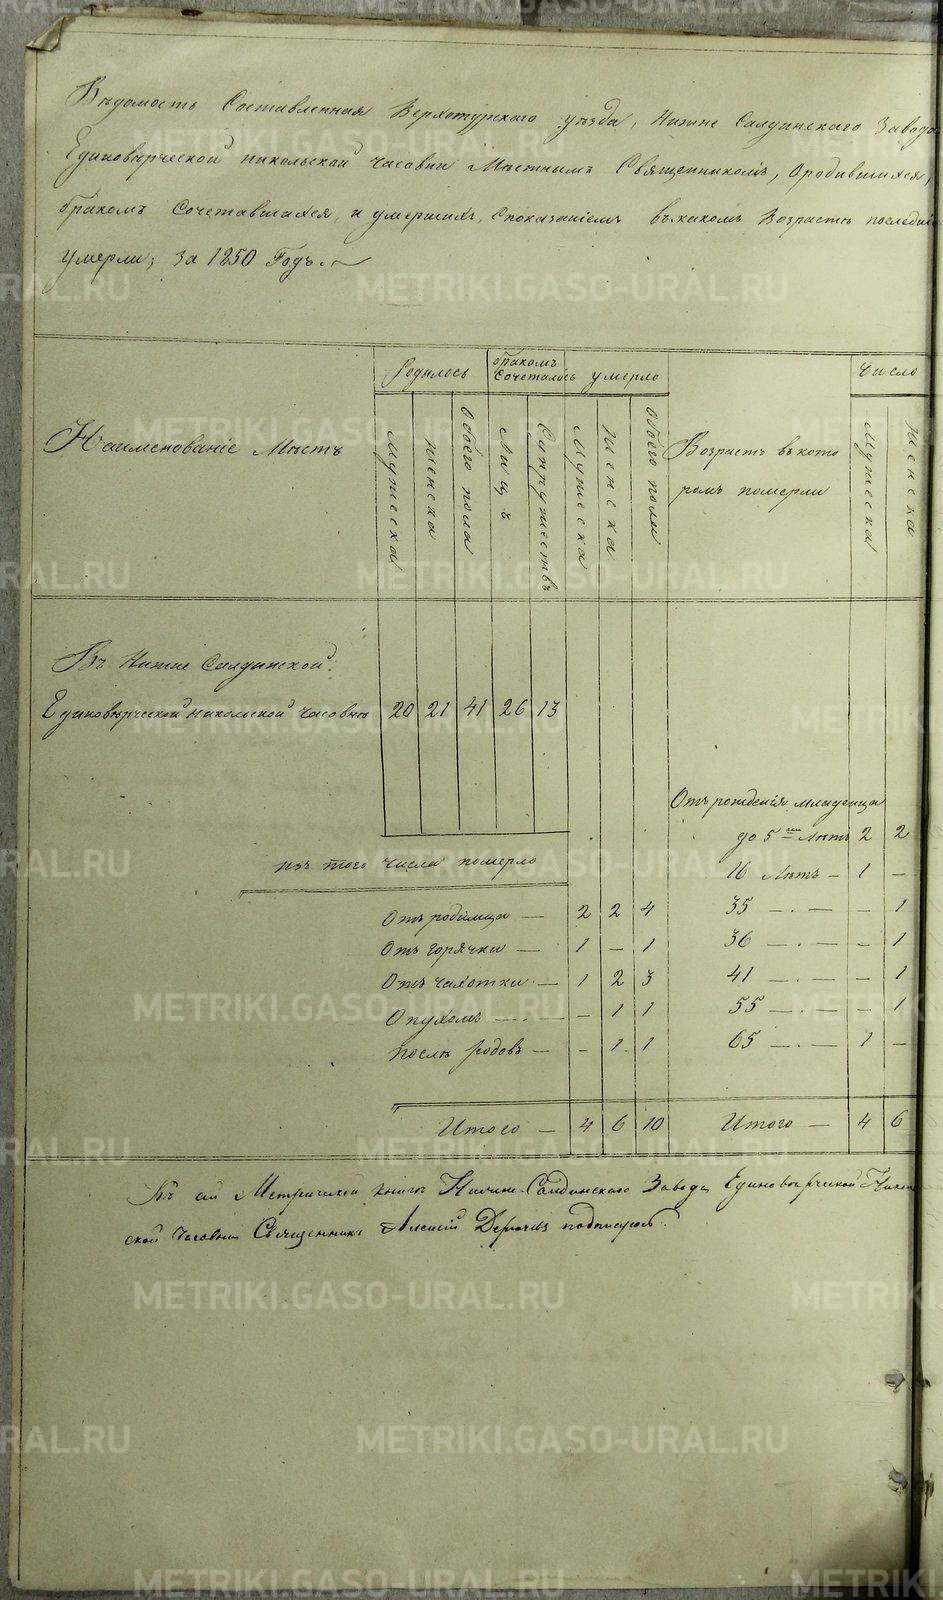 Вѣдомость Составленная Верхотурскаго уѣзда, Нижне Салдинскаго Завода
Единовѣрческой никольской часовни Мѣстнымъ Священникомъ, о родившихся,
бракомъ Сочетавшихся, и умершихъ, с показаніемъ въ какомъ Возрастѣ последніе
умерли; за 1850 Годъ.
Наименованіе Мѣстъ
Родилось
мужеска
женска
обоего пола
бракомъ
Сочеталось
Лицъ
Супружествъ
умерло
Мужеска
Женска
обоего пола
Возрастъ въ кото
ромъ померли
Число
Мужеска
женска
Въ Нижне Салдинской
Единовѣрческой никольской часовнѣ 20 21 41 26 13
изъ того числа померло
Отъ родимца — 2 2 4
Отъ горячки — 1 - 1
Отъ чахотки — 1 2 3
Опухомъ — - 1 1
послѣ родовъ — - 1 1
Итого — 4 6 10
Отъ рожденія младенца
до 5 Лѣтъ 2 2
16 Лѣтъ — 1 -
35 — . — - 1
36 — . — - 1
41 — . — - 1
55 — . — - 1
65 — . — 1 -
Итого — 4 6
Къ сей Метрической книгѣ Нижне-Салдинскаго Завода Единовѣрческой Николь
ской часовни Священникъ Алексій подписуюсь.
METRIKI.GASO-URAL.RU